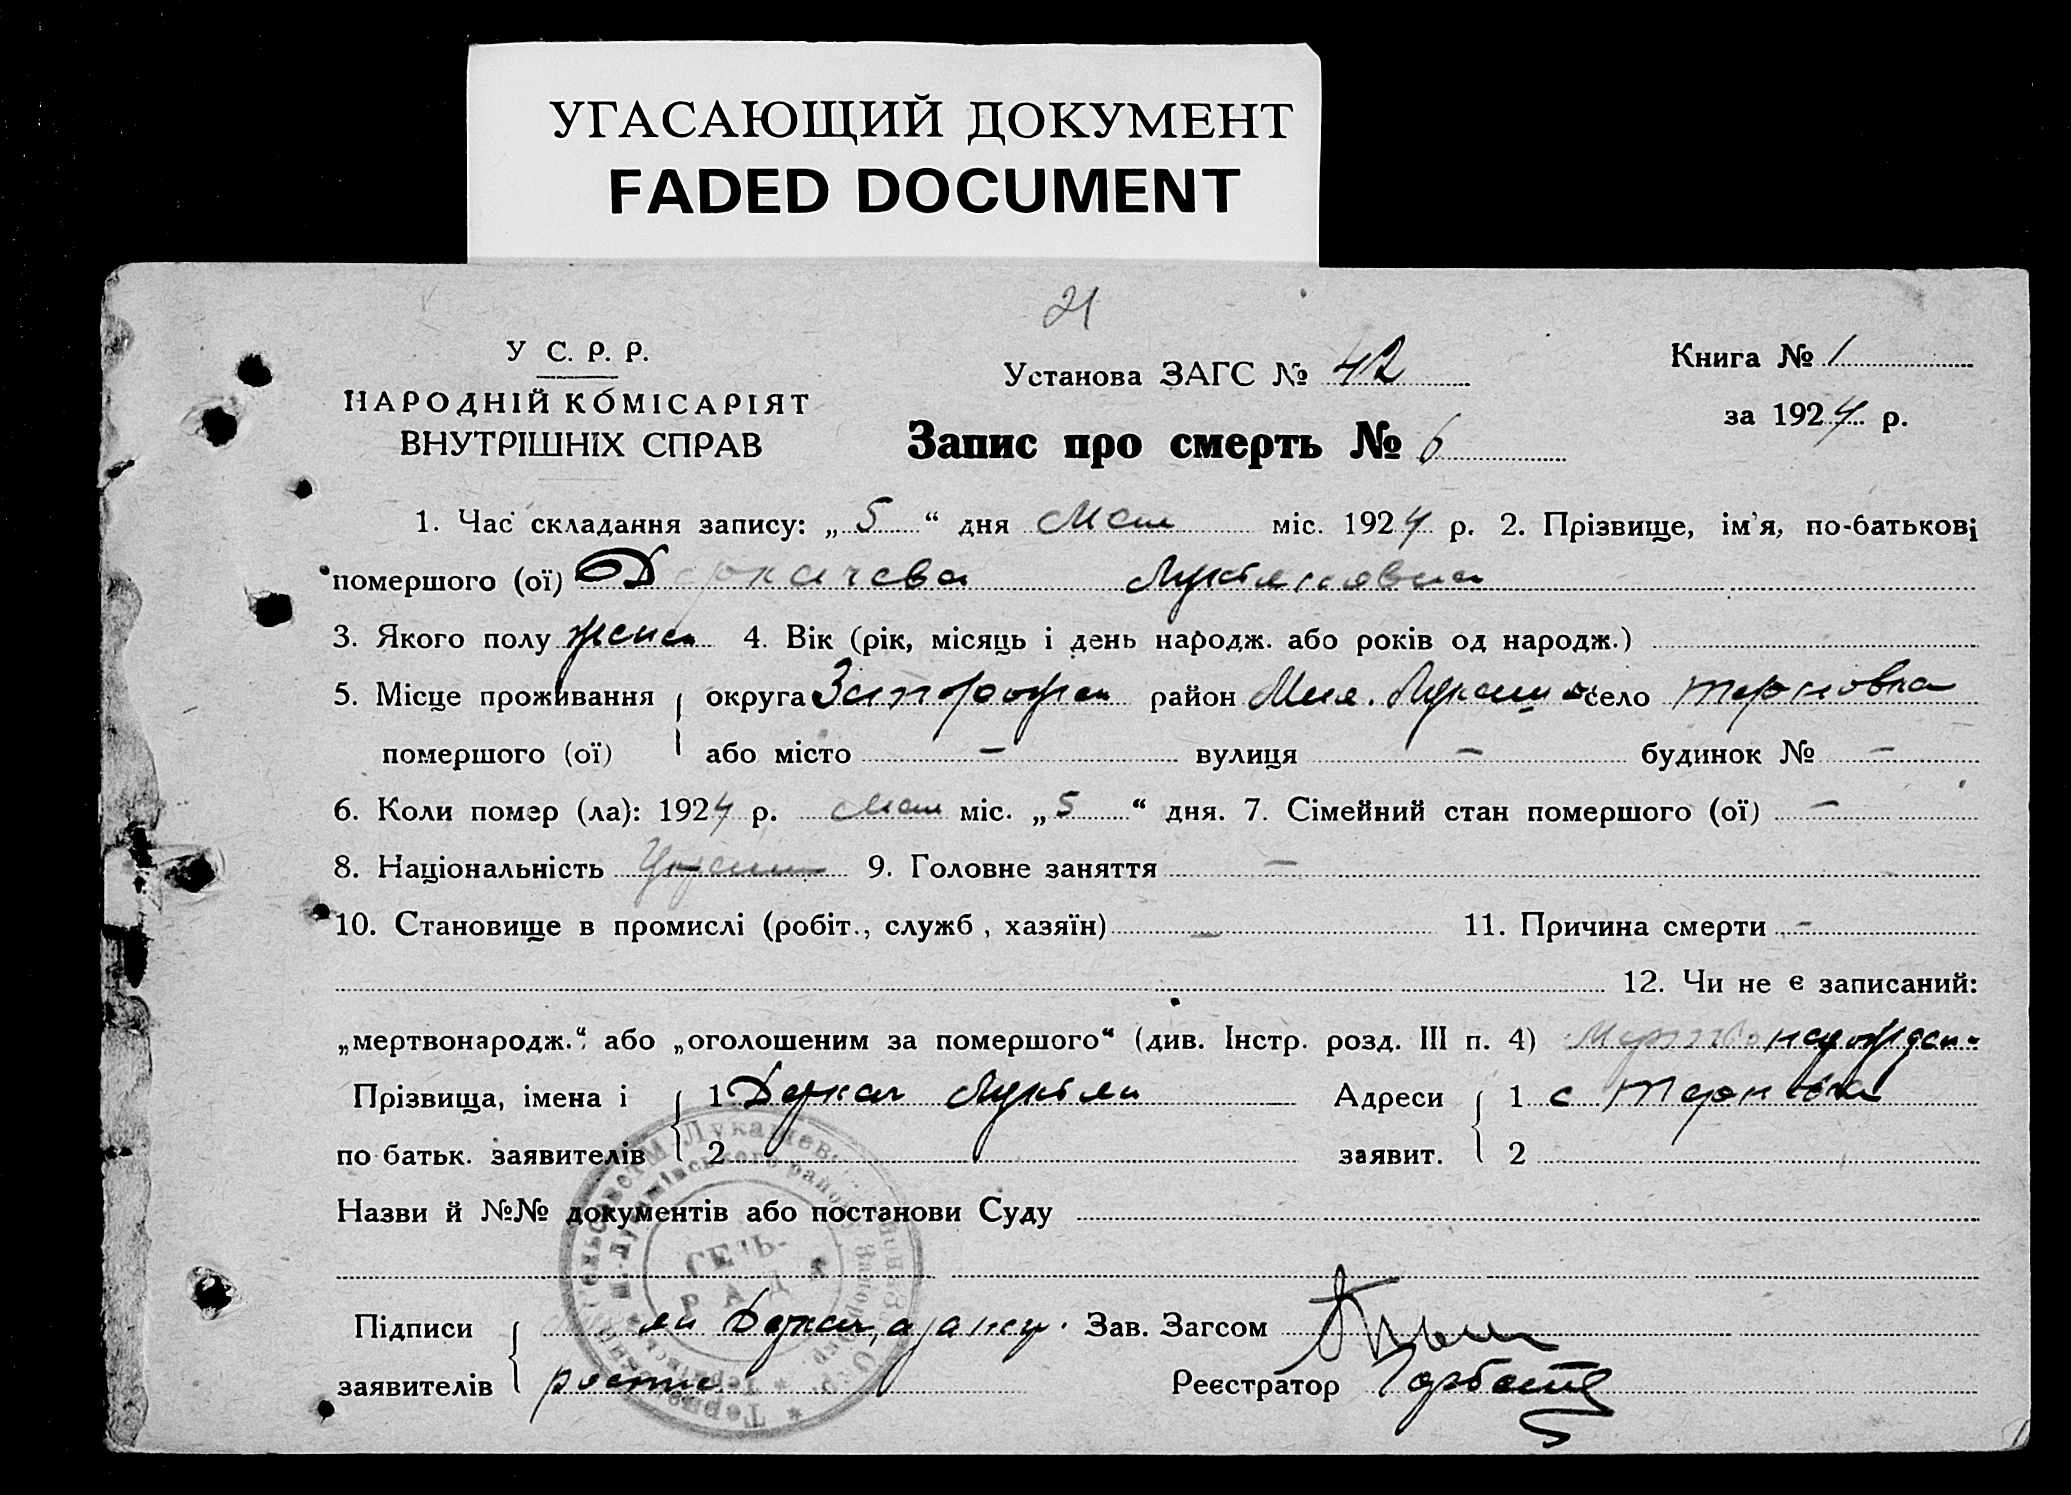 УГАСАЮЩИЙ ДОКУМЕНТ
FADED DOCUMENT
21
У С. Р. Р.
НАРОДНІЙ КОМІСАРІЯТ
ВНУТРІШНІХ СПРАВ
Установа ЗАГС № 42
Запис про смерть № 6
Книга № 1
за 1924 р.
1. Час складання запису: „ 5 “ дня Мая міс. 1924 р. 2. Прізвище, ім'я, по-батькові
помершого (ої) Деркачева Лукьяновна
3. Якого полу жен 4. Вік (рік, місяць і день народж. або років од народж.)
5. Місце проживання округа район село Терновка
помершого (ої) або місто – вулиця – будинок № –
6. Коли помер (ла): 1924 р. Мая міс. „ 5 “ дня. 7. Сімейний стан помершого (ої) –
8. Національність 9. Головне заняття –
10. Становище в промислі (робіт., служб, хазяїн) – 11. Причина смерти –
12. Чи не є записаний:
„мертвонародж.“ або „оголошеним за помершого“ (див. Інстр. розд. III п. 4)
Прізвища, імена і 1 Деркач Лукьян Адреси 1 с Терновка
по батьк. заявителів 2 заявит. 2
Назви й №№ документів або постанови Суду
СЕЛЬ-
РАДА
Підписи Деркач, Зав. Загсом
заявителів Реєстратор